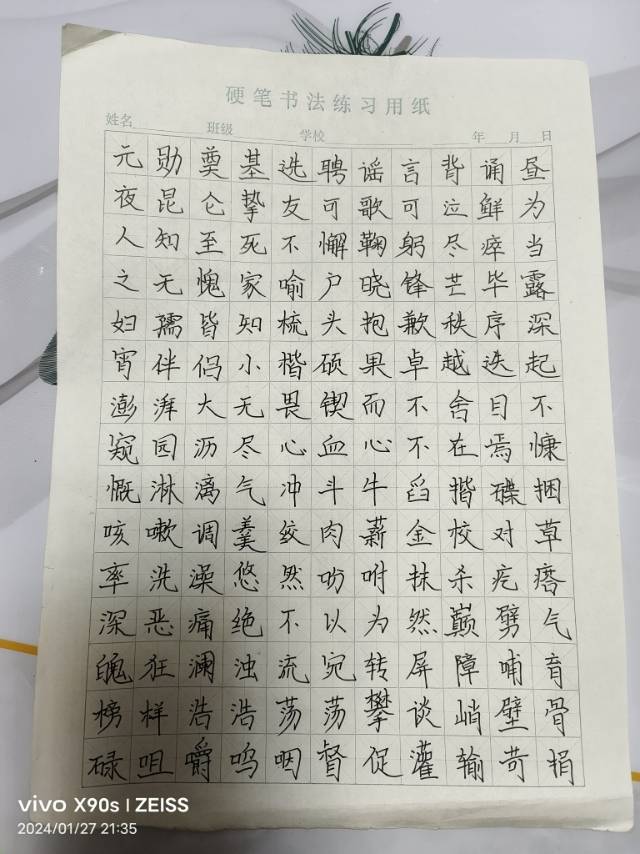 硬笔书法练习用纸
姓名 班级 学校 年 月 日
元勋奠基选聘谣言背诵昼
夜昆仑挚友可歌可泣鲜为
人知至死不懈鞠躬尽瘁当
之无愧家喻户晓锋芒毕露
妇孺皆知梳头抱歉秩序深
宵伴侣小楷硕果卓越迭起
澎湃大无畏锲而不舍目不
窥园沥尽心血心不在焉慷
慨淋漓气冲斗牛舀揩碟捆
咳嗽调羹绞肉薪金校对草
率洗澡悠然吩咐抹杀疙瘩
深恶痛绝不以为然巅劈气
魄狂澜浊流宛转屏障哺育
榜样浩浩荡荡攀谈峭壁骨
碌咀嚼呜咽督促灌输苛捐
vivo X90s | ZEISS
2024/01/27 21:35